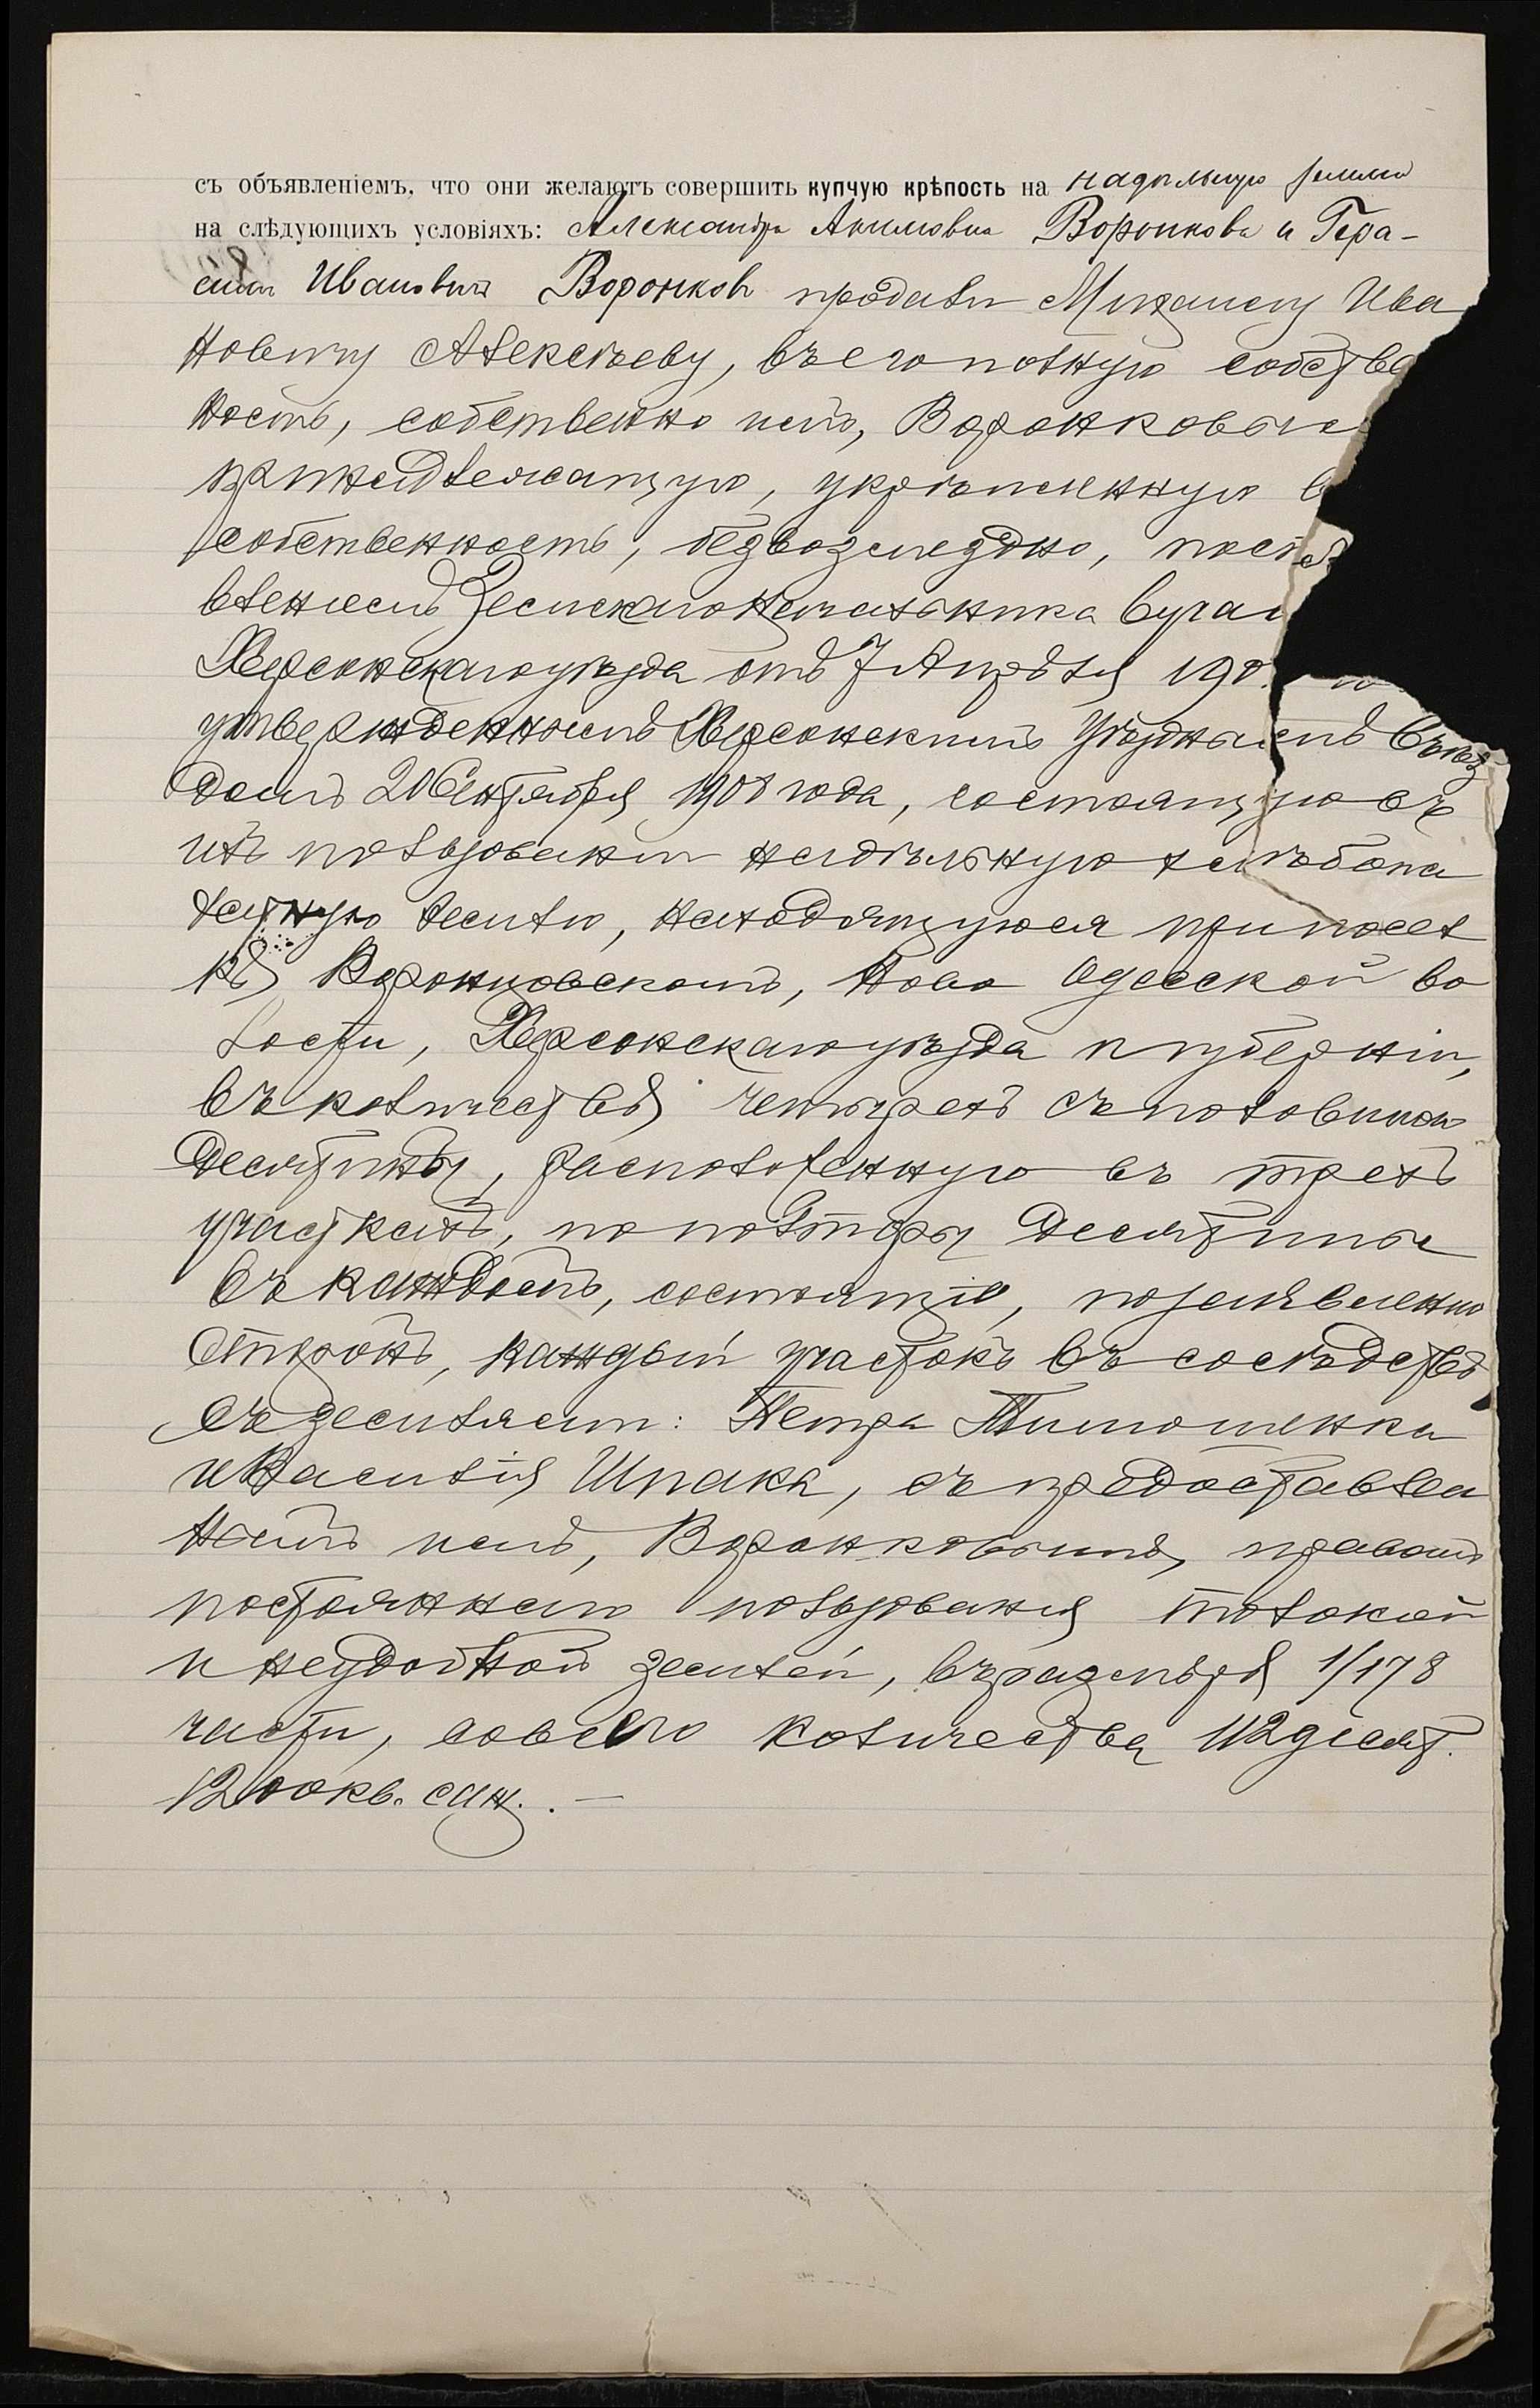 съ объявленіемъ, что они желаютъ совершить купчую крѣпость на надѣльную землю
на слѣдующихъ условіяхъ: Александра Акимовна Воронкова и Гера-
симъ Ивановичъ Воронковъ продали Михаилу Ива
новичу Алексѣеву, въ его полную собстве
ность, собственно имъ, Воронковымъ
принадлежащую, укрѣпленную в
собственность, безвозмездно, поста
вленіемъ Земскаго Начальника
Херсонскаго уѣзда отъ 7 Апрѣля 190
утвержденнымъ Херсонскимъ Уѣзднымъ Съѣз
домъ 20 Сентября 1908 года, состоящую въ
ихъ пользованіи надѣльную хлѣбопа
хатную землю, находящуюся при посел
кѣ Воронцовскомъ, Ново Одесской во
лости, Херсонскаго уѣзда и губерніи,
въ количествѣ четырехъ съ половиною
десятины, расположенную въ трехъ
участкахъ, по полторы десятины
въ каждомъ, состоящіе, по заявленію
сторонъ, каждый участокъ въ сосѣдствѣ
съ землями: Петра Тимошенка
и Василія Шпака, съ предоставлен
нымъ имъ, Воронковымъ, правомъ
постояннаго пользованія толокой
и неудобной землей, въ размѣрѣ 1/178
части, со всего количества 112 десят.
1200 кв. саж. . —